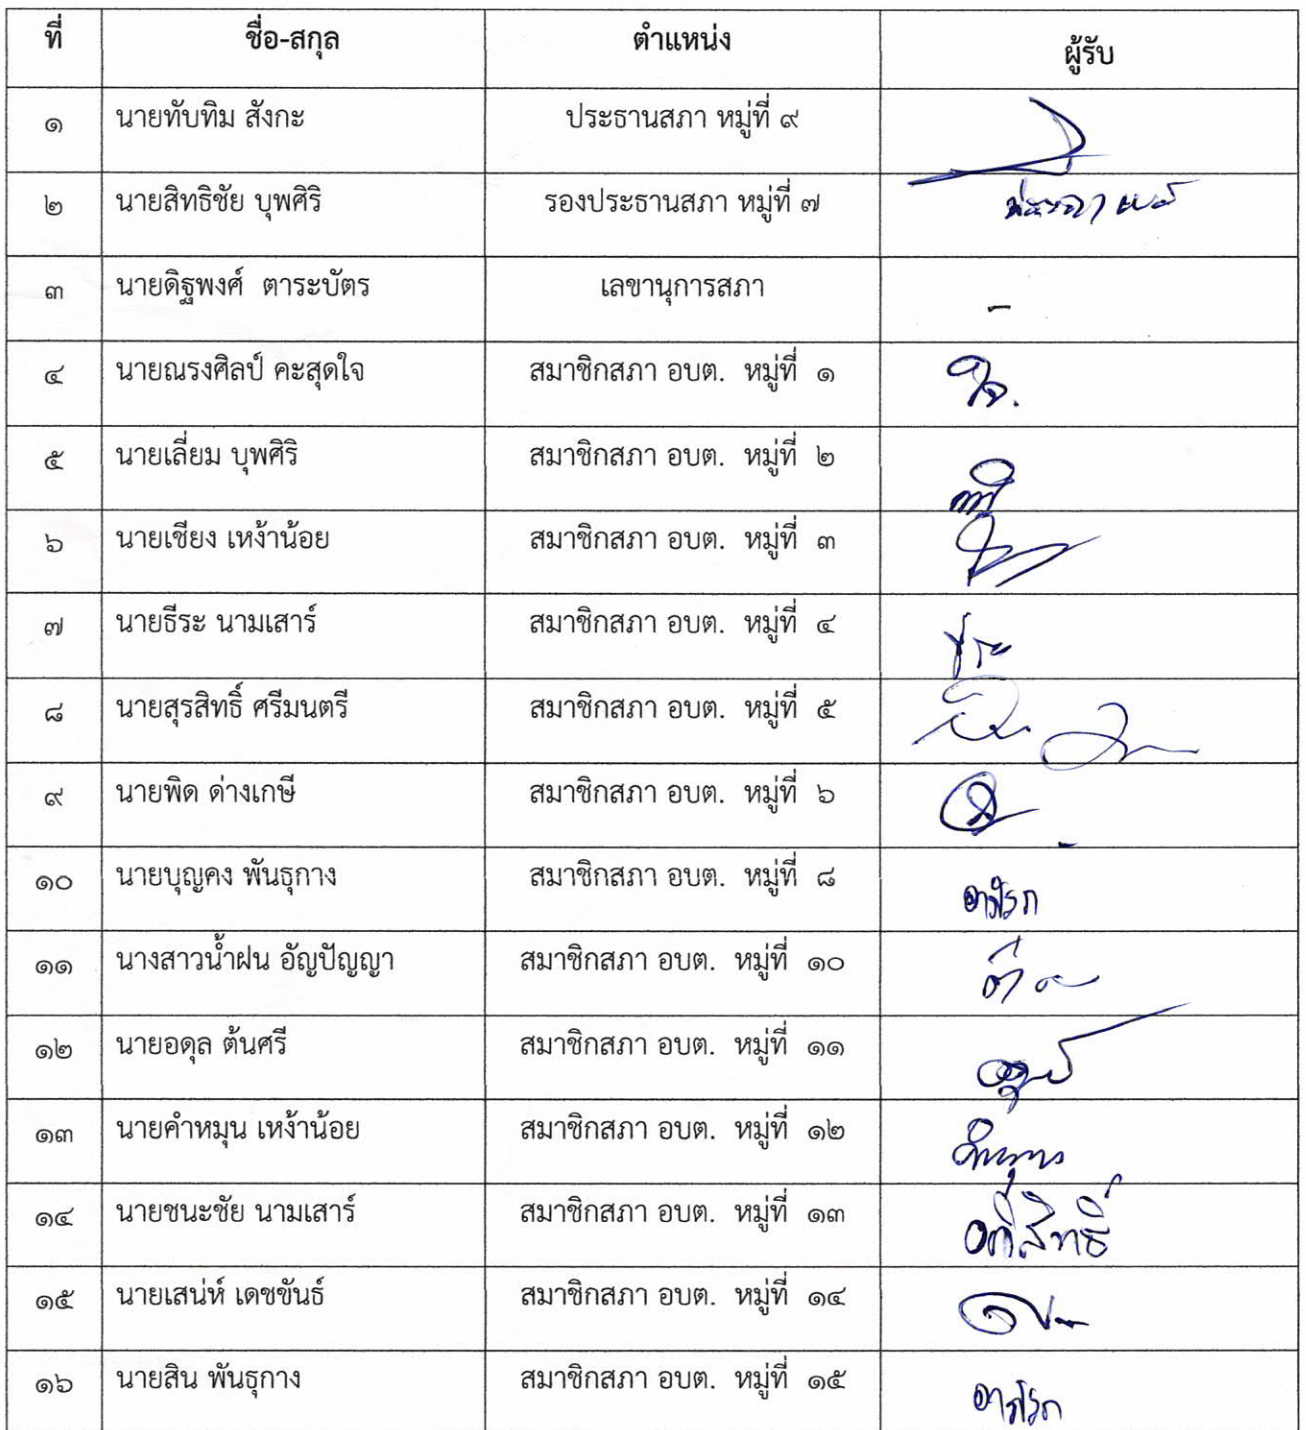 ที่ ชื่อ-สกุล ตำแหน่ง ผู้รับ
๑ นายทับทิม สังกะ ประธานสภา หมู่ที่ ๙
๒ นายสิทธิชัย บุพศิริ รองประธานสภา หมู่ที่ ๗
๓ นายดิฐพงศ์ ตาระบัตร เลขานุการสภา -
๔ นายณรงศิลป์ คะสุดใจ สมาชิกสภา อบต. หมู่ที่ ๑ ใจ.
๕ นายเลี่ยม บุพศิริ สมาชิกสภา อบต. หมู่ที่ ๒
๖ นายเชียง เหง้าน้อย สมาชิกสภา อบต. หมู่ที่ ๓
๗ นายธีระ นามเสาร์ สมาชิกสภา อบต. หมู่ที่ ๔ ธีระ
๘ นายสุรสิทธิ์ ศรีมนตรี สมาชิกสภา อบต. หมู่ที่ ๕
๙ นายพิด ด่างเกษี สมาชิกสภา อบต. หมู่ที่ ๖
๑๐ นายบุญคง พันธุกาง สมาชิกสภา อบต. หมู่ที่ ๘
๑๑ นางสาวน้ำฝน อัญปัญญา สมาชิกสภา อบต. หมู่ที่ ๑๐
๑๒ นายอดุล ต้นศรี สมาชิกสภา อบต. หมู่ที่ ๑๑
๑๓ นายคำหมุน เหง้าน้อย สมาชิกสภา อบต. หมู่ที่ ๑๒
๑๔ นายชนะชัย นามเสาร์ สมาชิกสภา อบต. หมู่ที่ ๑๓
๑๕ นายเสน่ห์ เดชขันธ์ สมาชิกสภา อบต. หมู่ที่ ๑๔
๑๖ นายสิน พันธุกาง สมาชิกสภา อบต. หมู่ที่ ๑๕